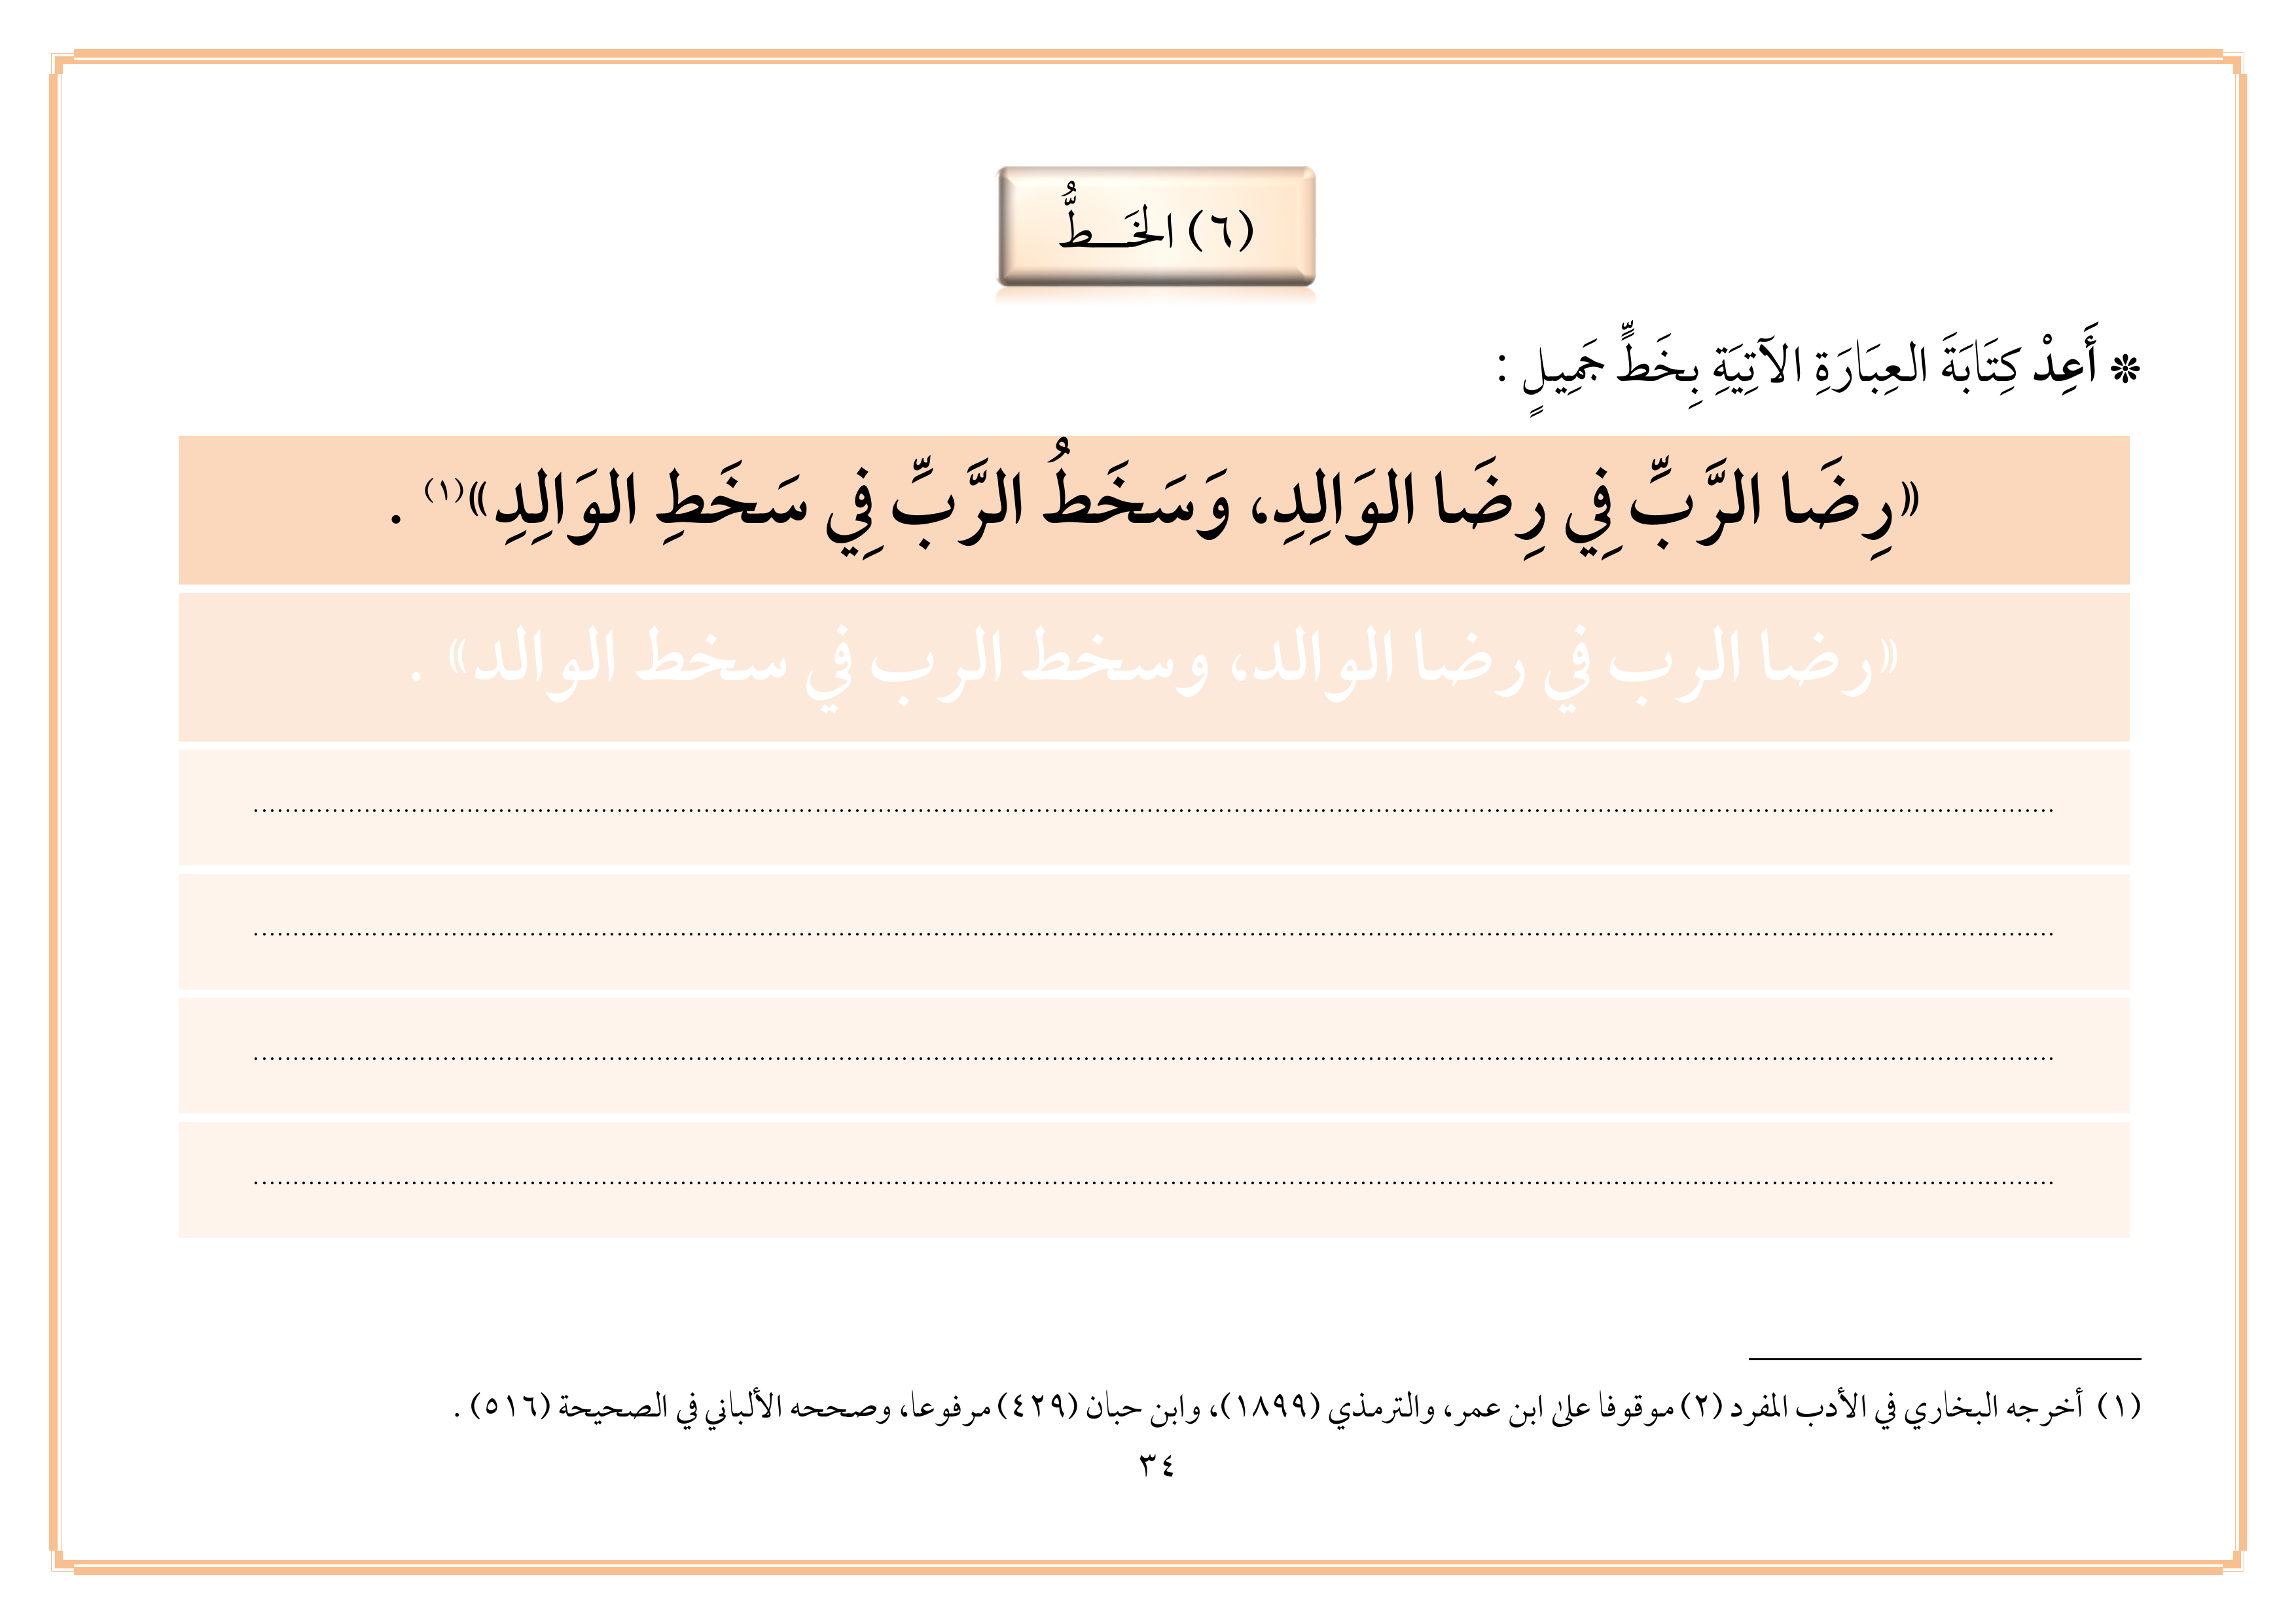 (٦) الخَـــطُّ
❊ أَعِدْ كِتَابَةَ العِبَارَةِ الآتِيَةِ بِخَطٍّ جَمِيلٍ :
((رِضَا الرَّبِّ فِي رِضَا الوَالِدِ، وَسَخَطُ الرَّبِّ فِي سَخَطِ الوَالِدِ))(١) .
((رضا الرب في رضا الوالد، وسخط الرب في سخط الوالد)) .
(١) أخرجه البخاري في الأدب المفرد (٢) موقوفا علىٰ ابن عمر، والترمذي (١٨٩٩)، وابن حبان (٤٢٩) مرفوعا، وصححه الألباني في الصحيحة (٥١٦) .
٣٤